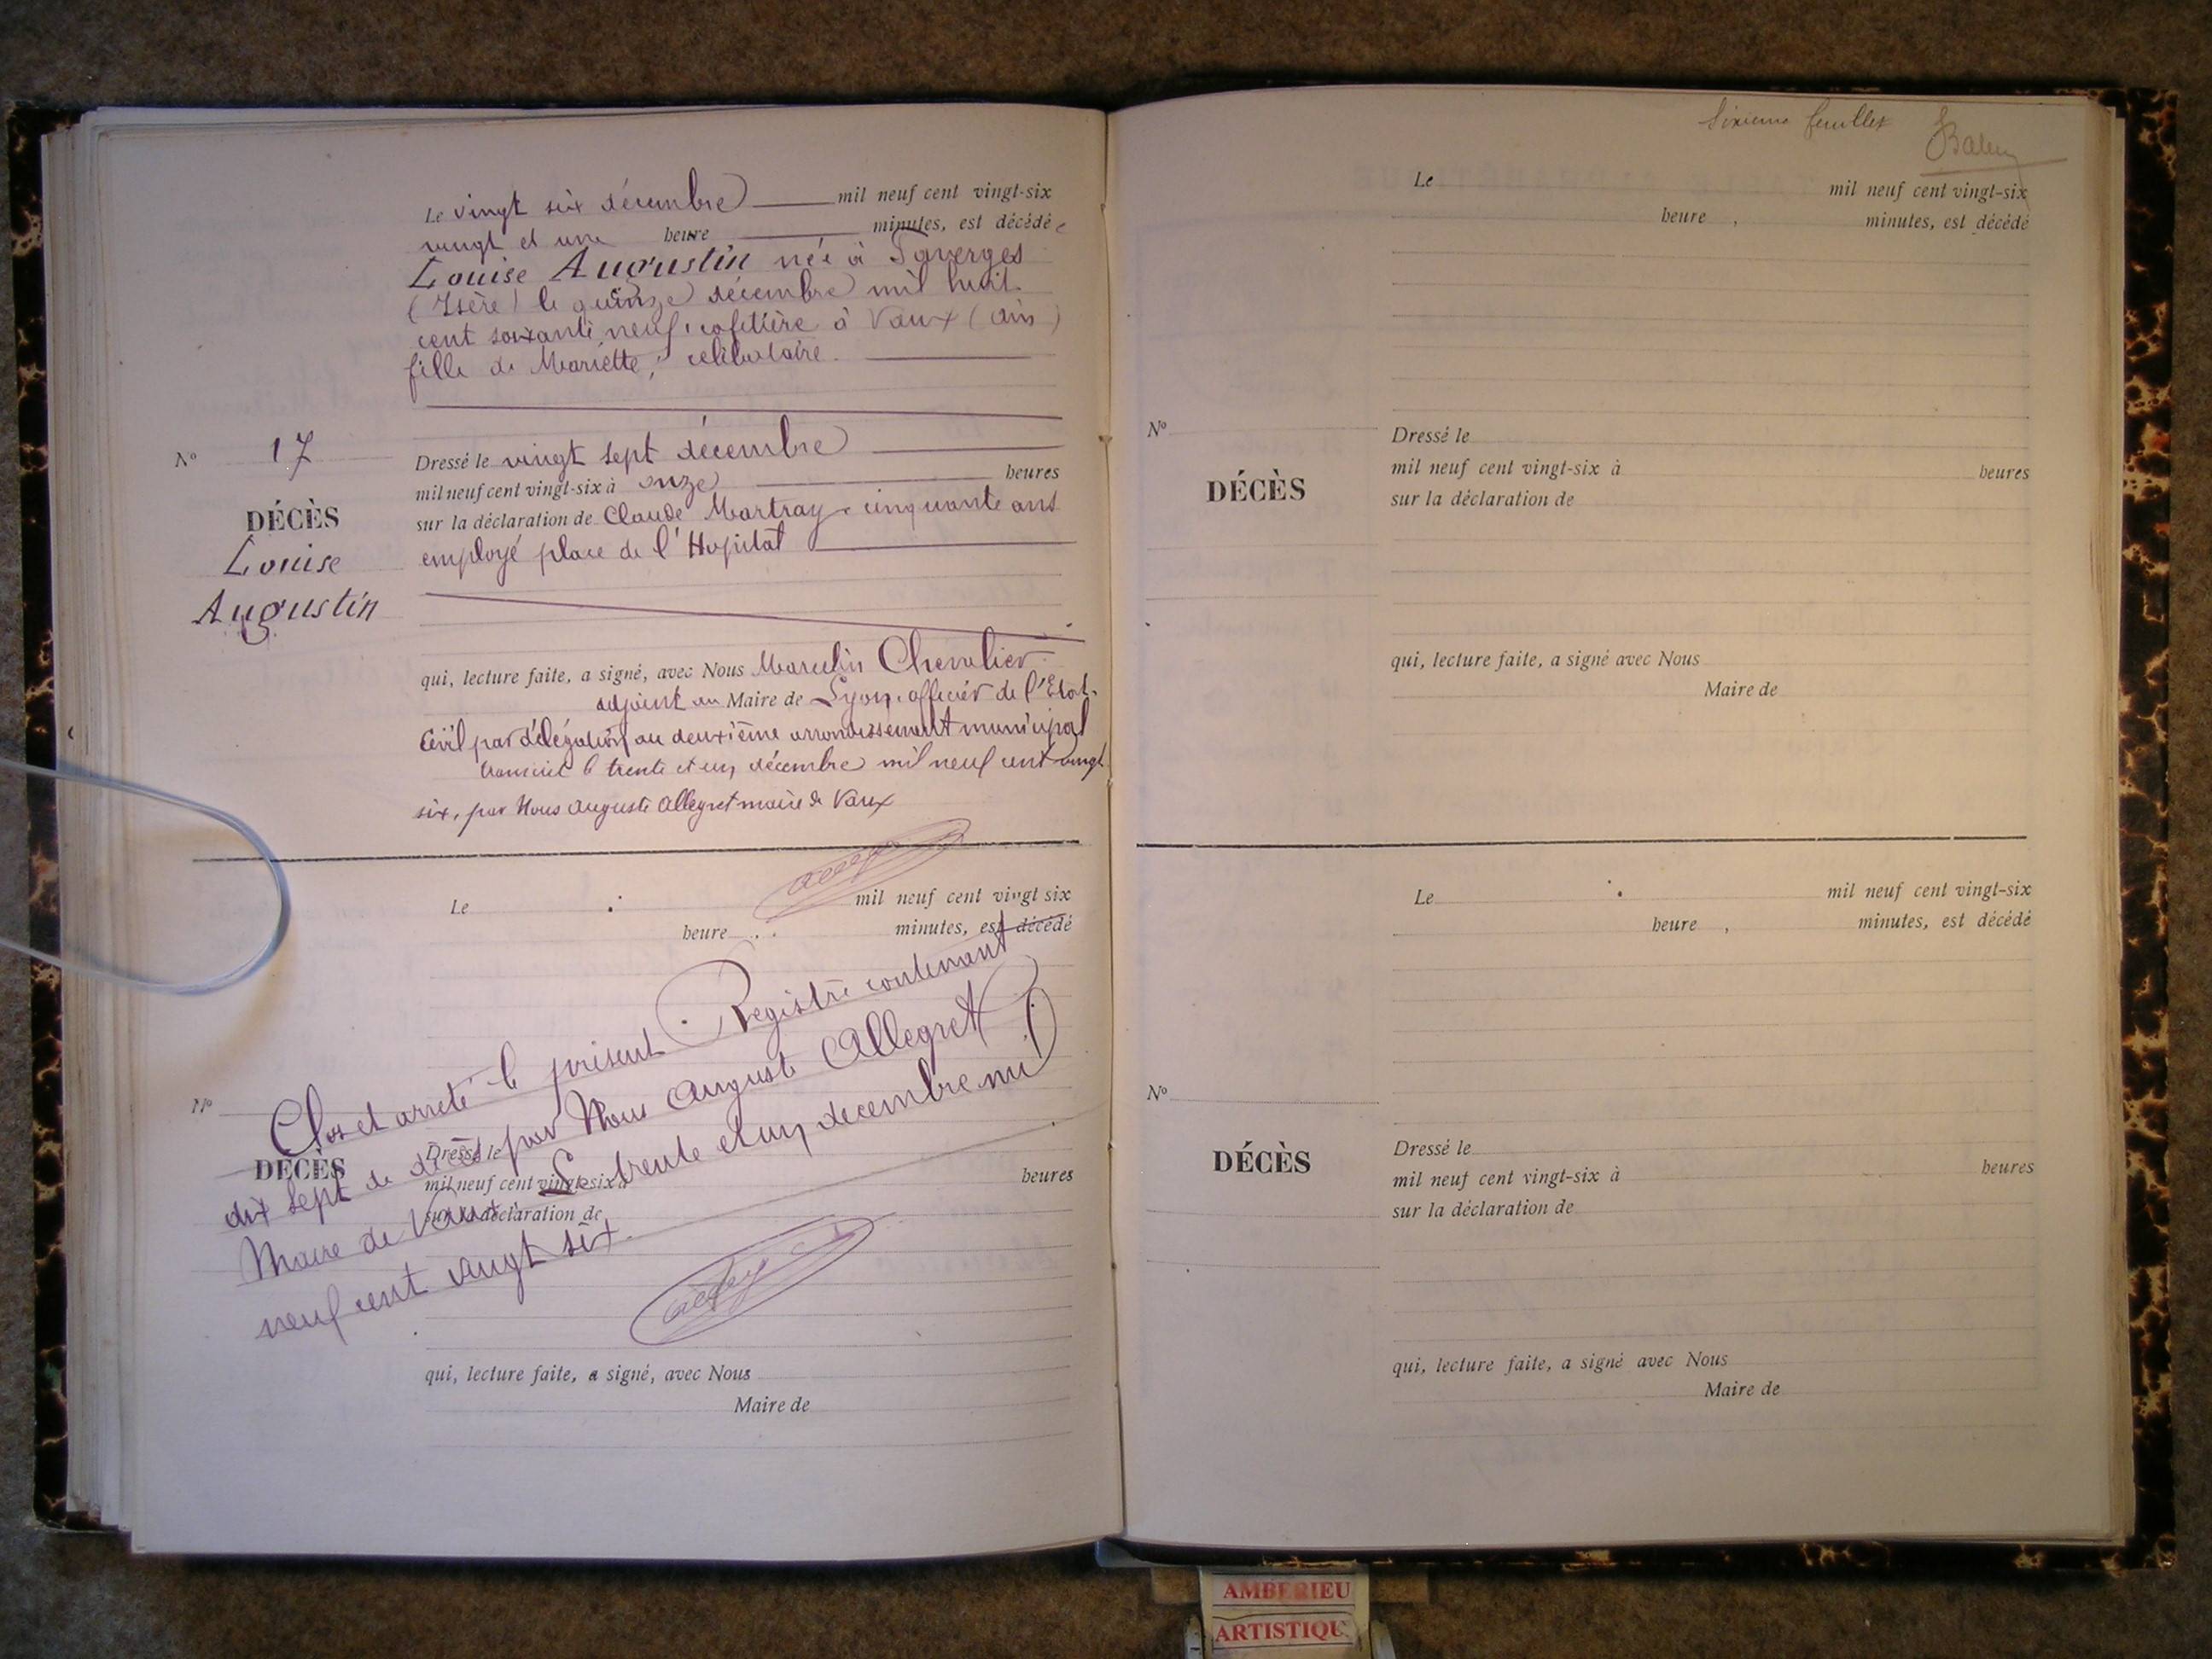 Le vingt six décembre mil neuf cent vingt-six
vingt et une heure minutes, est décédée
Louise Augustin née à Faverges
(Isère) le quinze décembre mil huit
cent soixante neuf, cafetière à Vaux (Ain)
fille de Mariette, célibataire.
No 17
DÉCÈS
Louise
Augustin
Dressé le vingt sept décembre
mil neuf cent vingt-six à onze heures
sur la déclaration de Claude Martray, cinquante ans
employé place de l'Hopital
qui, lecture faite, a signé, avec Nous Marcelin Chevalier
adjoint au Maire de Lyon, officier de l'Etat-
Civil par délégation au deuxième arrondissement municipal
transcrit le trente et un décembre mil neuf cent vingt
six, par Nous Auguste Allegret maire de Vaux
Le mil neuf cent vingt six
heure , minutes, est décédé
No
DÉCÈS
Dressé le
mil neuf cent vingt-six à heures
sur la déclaration de
Clos et arrêté le présent Registre contenant
dix sept de décès par Nous Auguste Allegret
Maire de Vaux Le trente et un décembre mil
neuf cent vingt six.
qui, lecture faite, a signé, avec Nous
Maire de
Sixième feuillet
Le mil neuf cent vingt-six
heure , minutes, est décédé
No
DÉCÈS
Dressé le
mil neuf cent vingt-six à heures
sur la déclaration de
qui, lecture faite, a signé avec Nous
Maire de
Le mil neuf cent vingt-six
heure , minutes, est décédé
No
DÉCÈS
Dressé le
mil neuf cent vingt-six à heures
sur la déclaration de
qui, lecture faite, a signé avec Nous
Maire de
AMBERIEU
ARTISTIQU